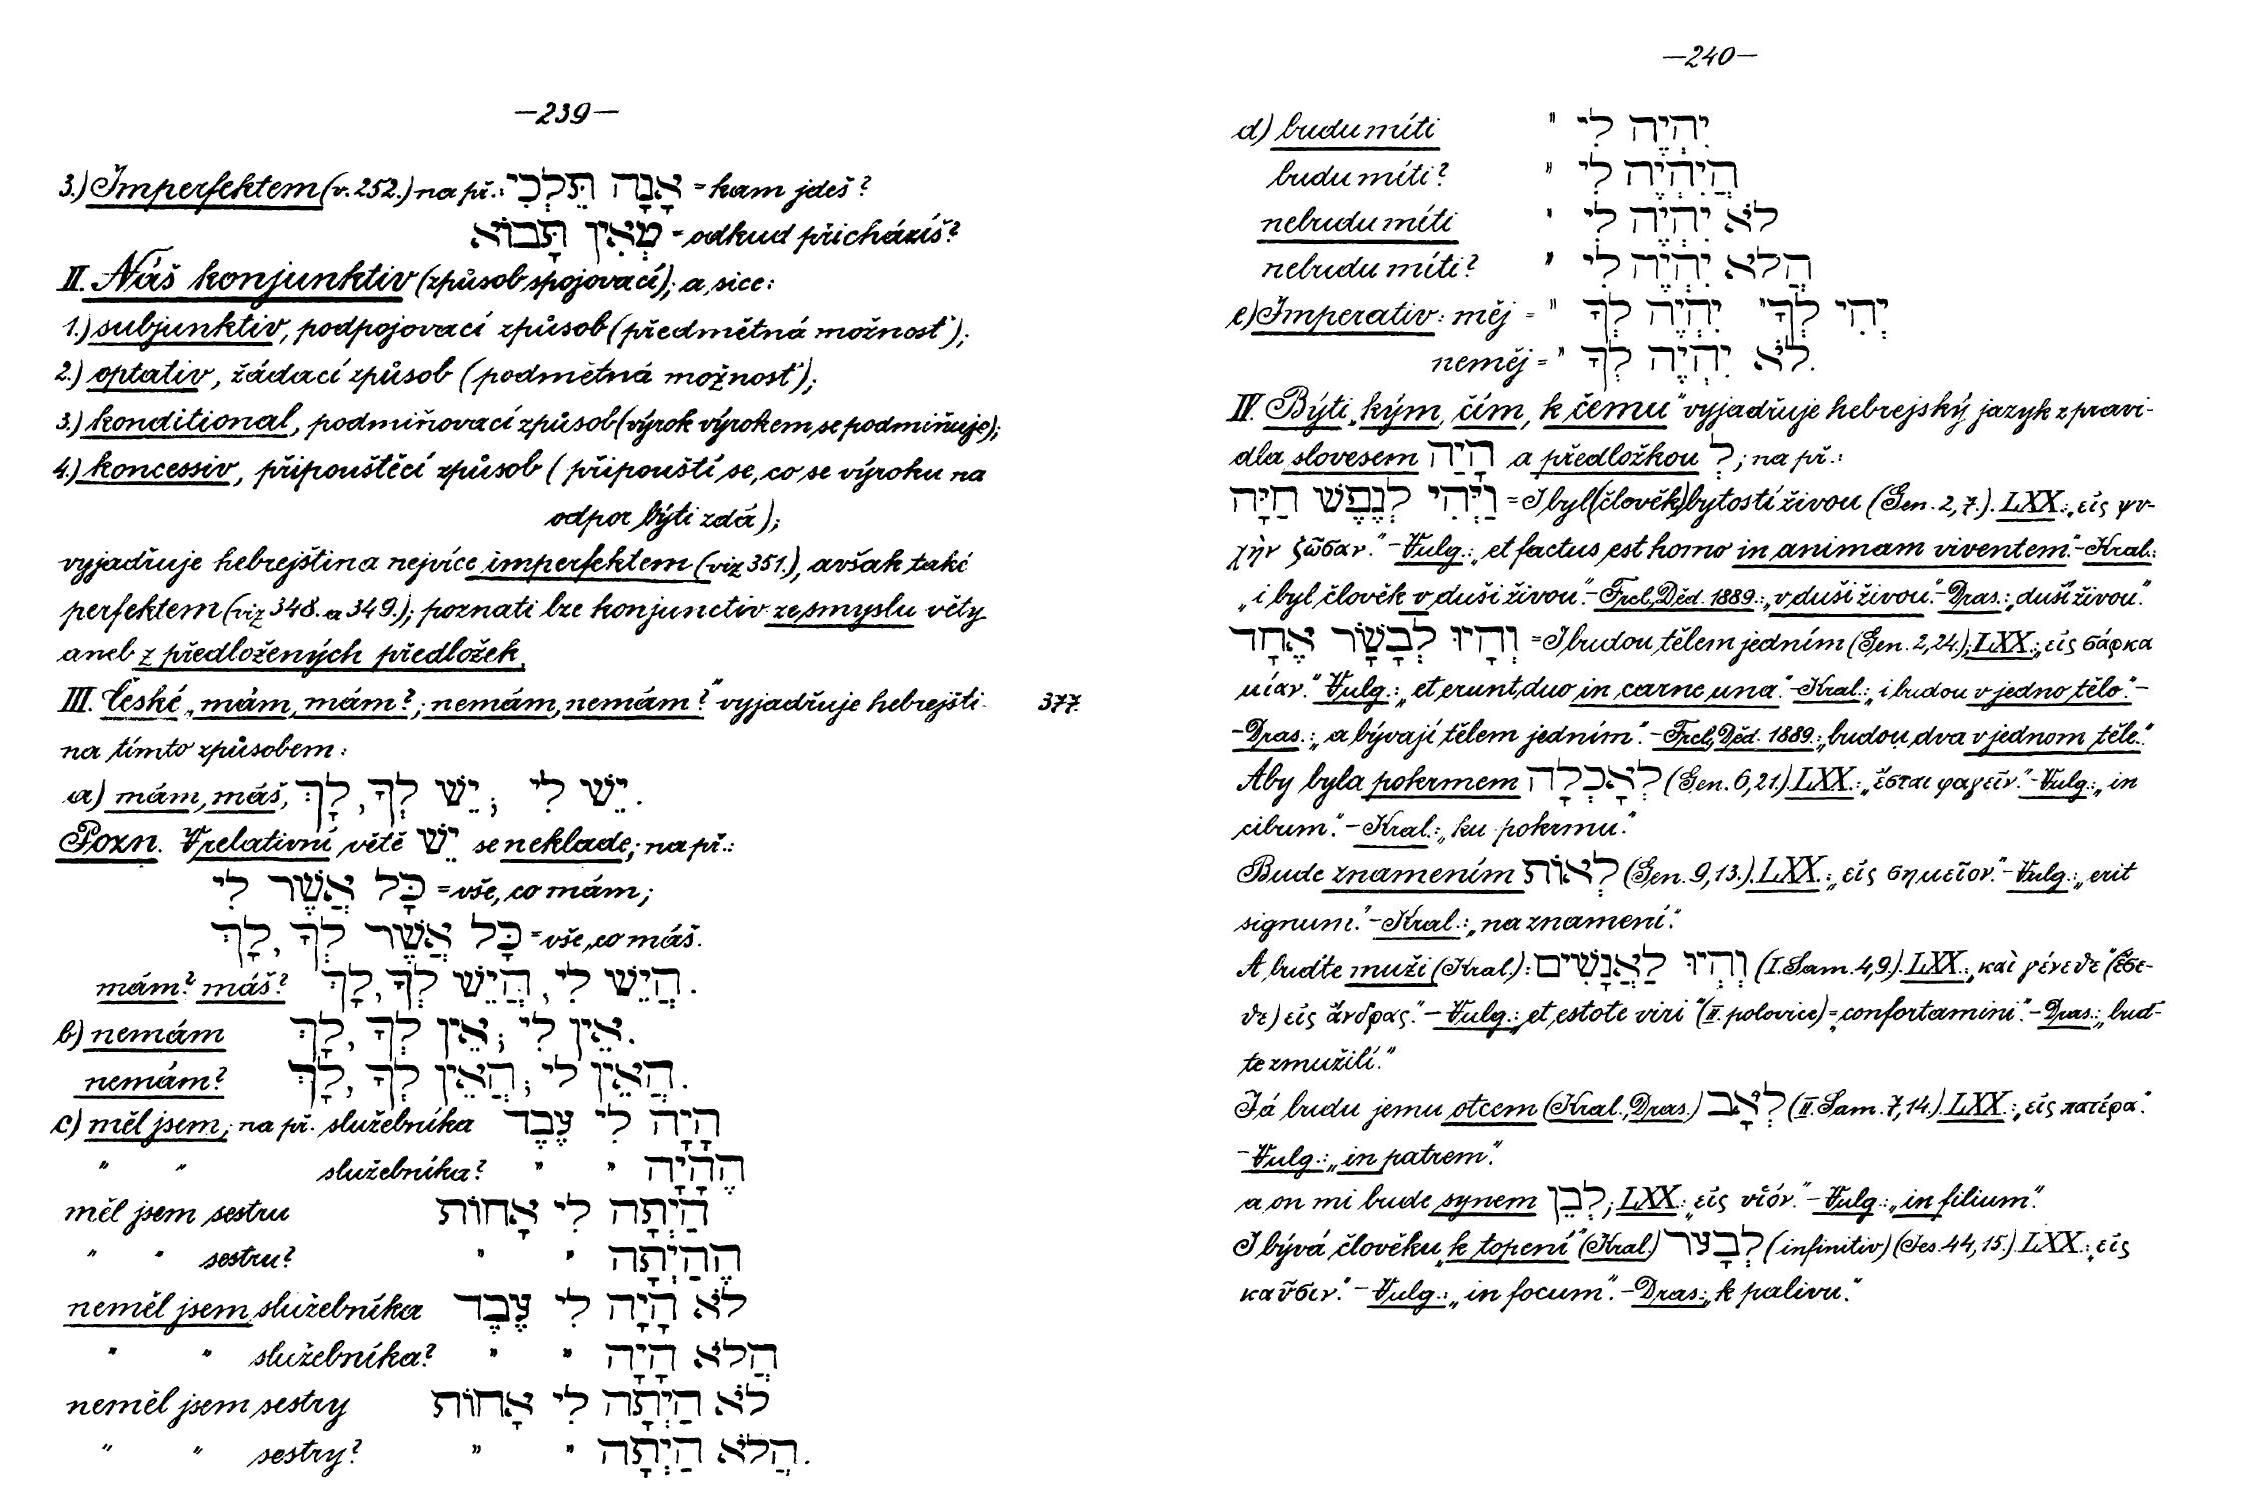 —239—
3.) Imperfektem (v. 252.) na př.: אָנָה תֵּלְכִי = kam jdeš?
מְאִין תָּבוֹא = odkud přicházíš?
II. Náš konjunktiv (způsob spojovací); a sice:
1.) subjunktiv, podpojovací způsob (předmětná možnosť);
2.) optativ, žádací způsob (podmětná možnosť);
3.) konditional, podmiňovací způsob (výrok výrokem se podmiňuje);
4.) koncessiv, připouštěcí způsob (připouští se, co se výroku na
odpor býti zdá);
vyjadřuje hebrejština nejvíce imperfektem (viz 351.), avšak také
perfektem (viz 348. a 349.); poznati lze konjunctiv ze smyslu věty
aneb z předložených předložek.
III. České „mám, mám?; nemám, nemám?" vyjadřuje hebrejšti- 377.
na tímto způsobem:
a) mám, máš, יֵשׁ לִי ; יֵשׁ לְךָ, לָךְ.
Pozn. V relativní větě יֵשׁ se neklade; na př.:
כָּל אֲשֶׁר לִי = vše, co mám;
כָּל אֲשֶׁר לְךָ, לָךְ = vše, co máš.
mám? máš? הֲיֵשׁ לִי, הֲיֵשׁ לְךָ, לָךְ.
b) nemám אֵין לִי ; אֵין לְךָ, לָךְ.
nemám? הַאֵין לִי ; הַאֵין לְךָ, לָךְ.
c) měl jsem; na př. služebníka הָיָה לִי עֶבֶד
" " služebníka? " " הֶהָיָה
měl jsem sestru הַיְתָה לִי אָחוֹת
" " sestru? " " הֶהַיְתָה
neměl jsem služebníka לֹא הָיָה לִי עֶבֶד
" " služebníka? " " הֲלֹא הָיָה
neměl jsem sestry לֹא הַיְתָה לִי אָחוֹת
" " sestry? " " הֲלֹא הַיְתָה.
—240—
d) budu míti " יִהְיֶה לִי
budu míti? " הֲיִהְיֶה לִי
nebudu míti " לֹא יִהְיֶה לִי
nebudu míti? " הֲלֹא יִהְיֶה לִי
e) Imperativ: měj = " יְהִי לְךָ " יִהְיֶה לְךָ
neměj = " לֹא יִהְיֶה לְךָ.
IV. Býti „kým, čím, k čemu" vyjadřuje hebrejský jazyk zpravi-
dla slovesem הָיָה a předložkou לְ; na př.:
וַיְּהִי לְנֶפֶשׁ חַיָּה = I byl (člověk) bytostí živou (Gen. 2, 7.). LXX.: „εἰς ψυ-
χὴν ζῶσαν." – Vulg.: „et factus est homo in animam viventem". – Kral.:
„i byl člověk v duši živou". – Frcl., Děd. 1889.: „v duši živou". – Dras.: „duší živou".
וְהָיוּ לְבָשָׂר אֶחָד = I budou tělem jedním (Gen. 2, 24.); LXX.: „εἰς σάρκα
μίαν." Vulg.: „et erunt duo in carne una". – Kral.: „i budou v jedno tělo". –
– Dras.: „a bývají tělem jedním". – Frcl., Děd. 1889.: „budou dva v jednom těle."
Aby byla pokrmem לְאָכְלָה (Gen. 6, 21.). LXX.: „ἔσται φαγεῖν". – Vulg.: „in
cibum". – Kral.: „ku pokrmu."
Bude znamením לְאוֹת (Gen. 9, 13.). LXX.: „εἰς σημεῖον". – Vulg.: „erit
signum". – Kral.: „na znamení."
A buďte muži (Kral.): וְהְיוּ לַאֲנָשִׁים (I. Sam. 4, 9.). LXX.: „καὶ γένεθε" (ἔσε-
θε) εἰς ἄνδρας." – Vulg.: „et estote viri" (II. polovice) = „confortamini". – Dras.: „buď-
te zmužilí."
Já budu jemu otcem (Kral., Dras.) לְאָב (II. Sam. 7, 14.). LXX.: „εἰς πατέρα".
– Vulg.: „in patrem".
a on mi bude synem לְבֵן; LXX.: „εἰς υἱόν." – Vulg.: „in filium".
I bývá člověku „k topení" (Kral.) לְבָעֵר (infinitiv) (Jes. 44, 15.). LXX.: „εἰς
καῦσιν." – Vulg.: „in focum". – Dras.: „k palivu."